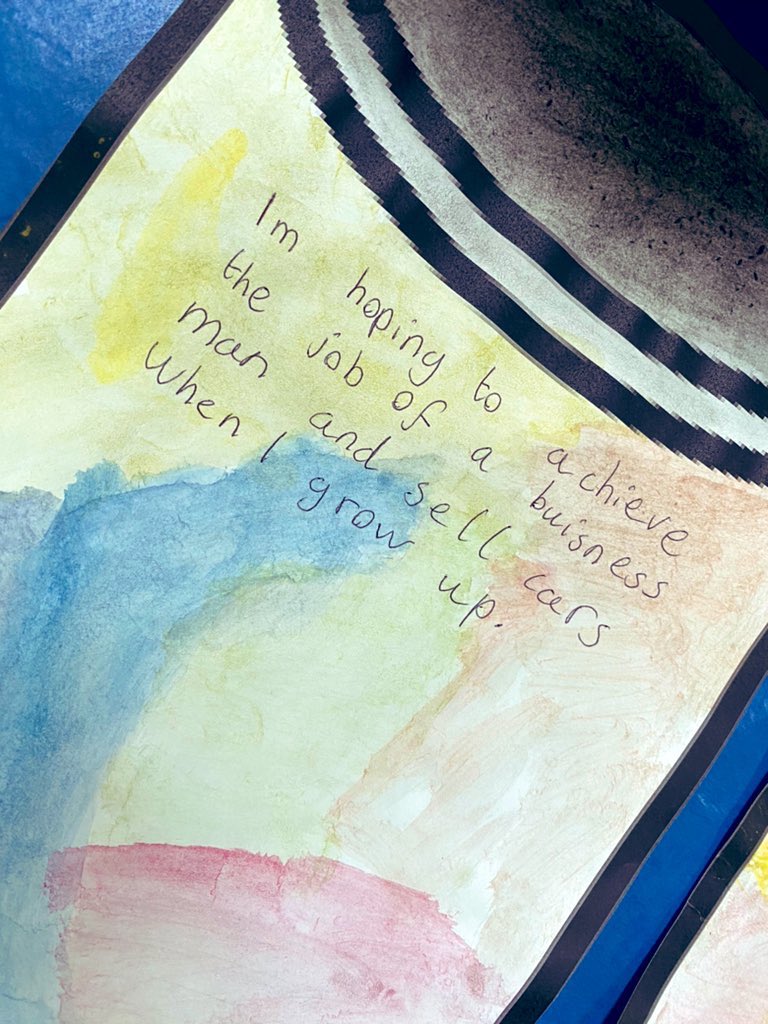 Im hoping to achieve
the job of a buisness
man and sell cars
when I grow up.